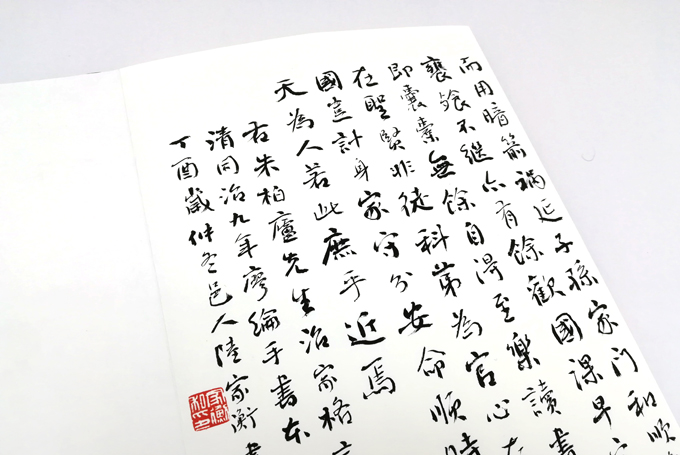 而用暗箭禍延子孫家门和順
饔飧不继亦有餘歡國課早
即囊橐無餘自得至樂讀書
在聖賢非徒科第為官心在
國豈計身家守分安命順時
天為人若此庶乎近焉
右朱柏廬先生治家格言
清同治九年廖綸手書本
丁酉歲仲冬邑人陸家衡書